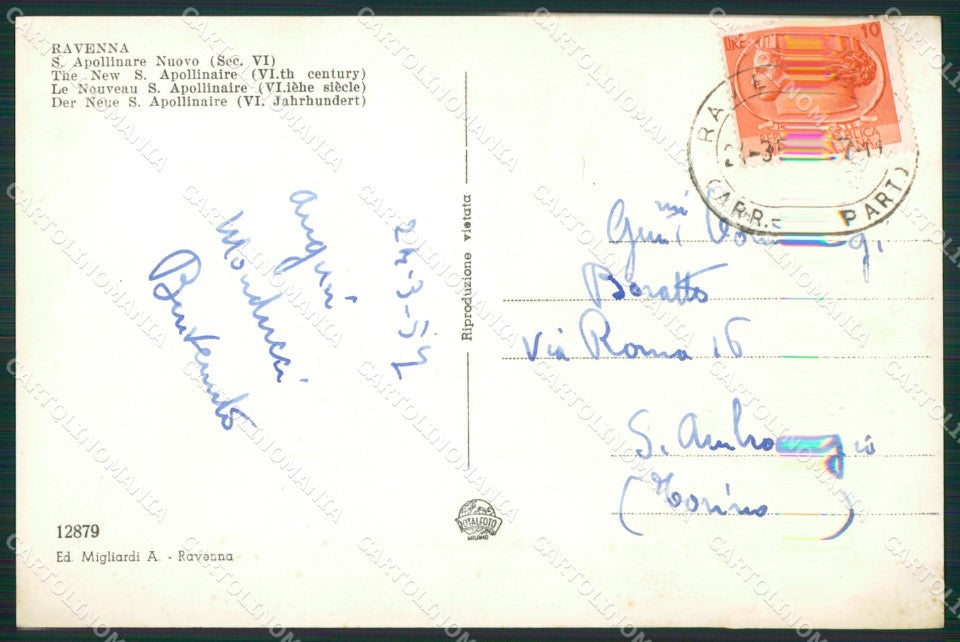 RAVENNA
S. Apollinare Nuovo (Sec. VI)
The New S. Apollinaire (VI.th century)
Le Nouveau S. Apollinaire (VI.ièhe siècle)
Der Neue S. Apollinaire (VI. Jahrhundert)
LIRE 10
RAVE
(ARR. PART)
24-3-54
auguri
Monducci
Benvenuto
Riproduzione vietata
Boratto
Via Roma 16
S. Ambrogio
(Torino)
ITALFOTO
MILANO
12879
Ed. Migliardi A. - Ravenna
CARTOLINOMANIA